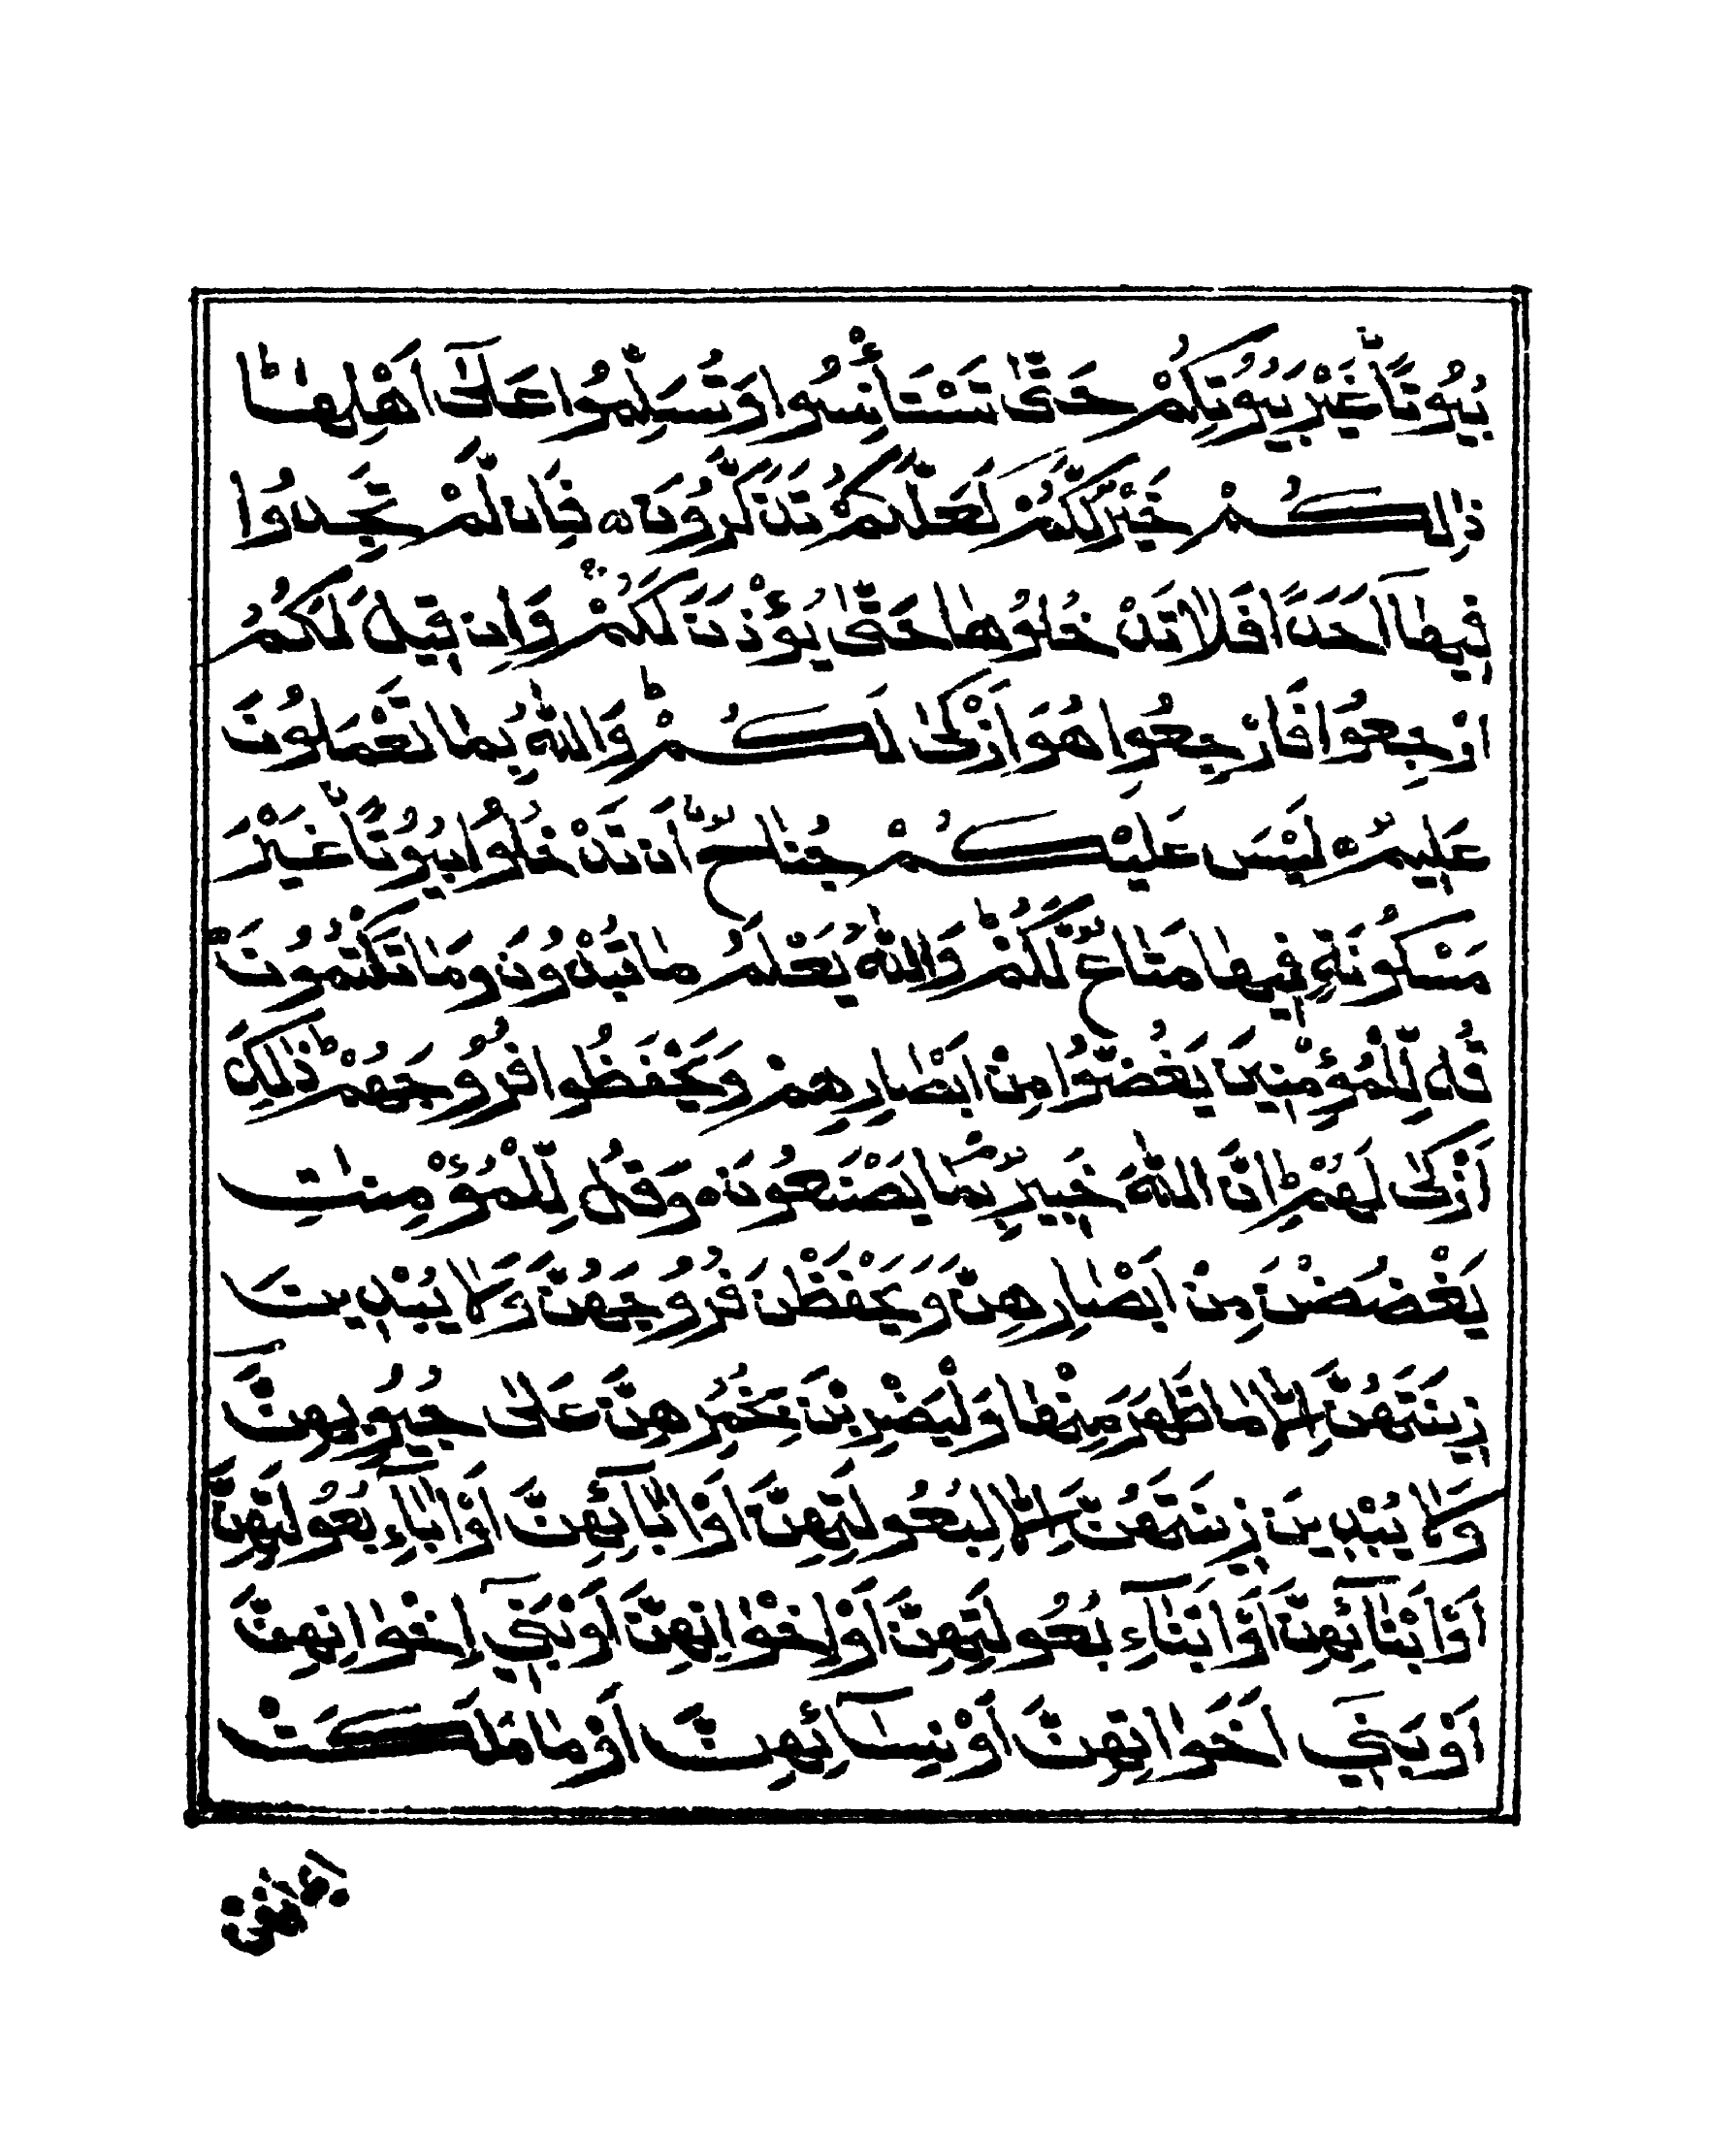 بُيُوْتًا غَيْرَ بُيُوْتِكُمْ حَتّٰى تَسْتَأْنِسُوا وَتُسَلِّمُوا عَلٰٓى اَهْلِهٰا ؕ
ذٰلِكُمْ خَيْرٌ لَّكُمْ لَعَلَّكُمْ تَذَكَّرُوْنَ ه فَاِنْ لَّمْ تَجِدُوْا
فِيْهٰآ اَحَدًا فَلَا تَدْخُلُوْهٰا حَتّٰى يُؤْذَنَ لَكُمْ وَاِنْ قِيْلَ لَكُمُ
ارْجِعُوْا فَارْجِعُوا هُوَ اَزْكٰى لَكُمْ ؕ وَاللّٰهُ بِمٰا تَعْمَلُوْنَ
عَلِيْمٌ ه لَيْسَ عَلَيْكُمْ جُنٰاحٌ اَنْ تَدْخُلُوْا بُيُوْتًا غَيْرَ
مَسْكُوْنَةٍ فِيْهٰا مَتٰاعٌ لَّكُمْ ؕ وَاللّٰهُ يَعْلَمُ مٰا تُبْدُوْنَ وَمٰا تَكْتُمُوْنَ
قُلْ لِّلْمُؤْمِنِيْنَ يَغُضُّوْا مِنْ اَبْصٰارِهِمْ وَيَحْفَظُوْا فُرُوْجَهُمْ ؕ ذٰلِكَ
اَزْكٰى لَهُمْ ؕ اِنَّ اللّٰهَ خَبِيْرٌ بِمٰا يَصْنَعُوْنَ ه وَقُلْ لِّلْمُؤْمِنٰتِ
يَغْضُضْنَ مِنْ اَبْصٰارِهِنَّ وَيَحْفَظْنَ فُرُوْجَهُنَّ وَلَا يُبْدِيْنَ
زِيْنَتَهُنَّ اِلَّا مٰا ظَهَرَ مِنْهٰا وَلْيَضْرِبْنَ بِخُمُرِهِنَّ عَلٰى جُيُوْبِهِنَّ
وَلَا يُبْدِيْنَ زِيْنَتَهُنَّ اِلَّا لِبُعُوْلَتِهِنَّ اَوْ اٰبٰٓائِهِنَّ اَوْ اٰبٰٓاءِ بُعُوْلَتِهِنَّ
اَوْ اَبْنٰٓائِهِنَّ اَوْ اَبْنٰٓاءِ بُعُوْلَتِهِنَّ اَوْ اِخْوٰانِهِنَّ اَوْ بَنِيْٓ اِخْوٰانِهِنَّ
اَوْ بَنِيْٓ اَخَوٰاتِهِنَّ اَوْ نِسٰٓائِهِنَّ اَوْ مٰا مَلَكَتْ